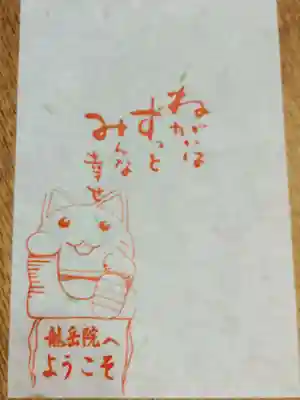 ねがいは
ずっと
みんな
幸せ
龍岳院へ
ようこそ